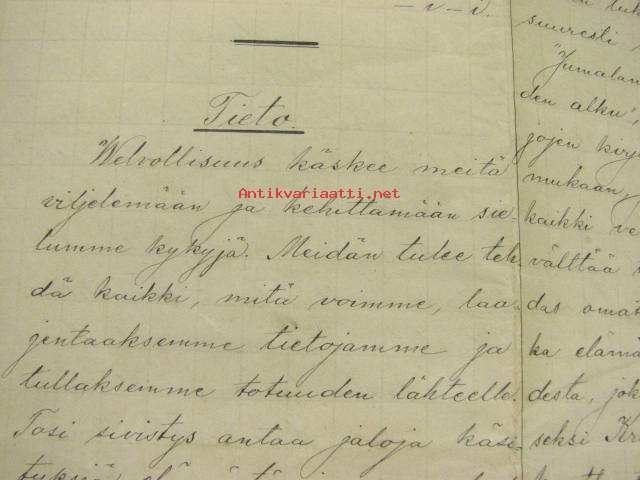 - v - v.
Tieto.
Welvollisuus käskee meitä
viljelemään ja kehittämään sie-
lumme kykyjä. Meidän tulee teh-
dä kaikki, mitä voimme, laa-
jentaaksemme tietojamme ja
tullaksemme totuuden lähteelle.
Tosi sivistys antaa jaloja käsi-
Antikvariaatti.net
suuresti
"Jumalan
den alku",
jojen kirj
mukaan,
kaikki ve
välttää
das omat
ka elämä
desta, jok
seksi Kr